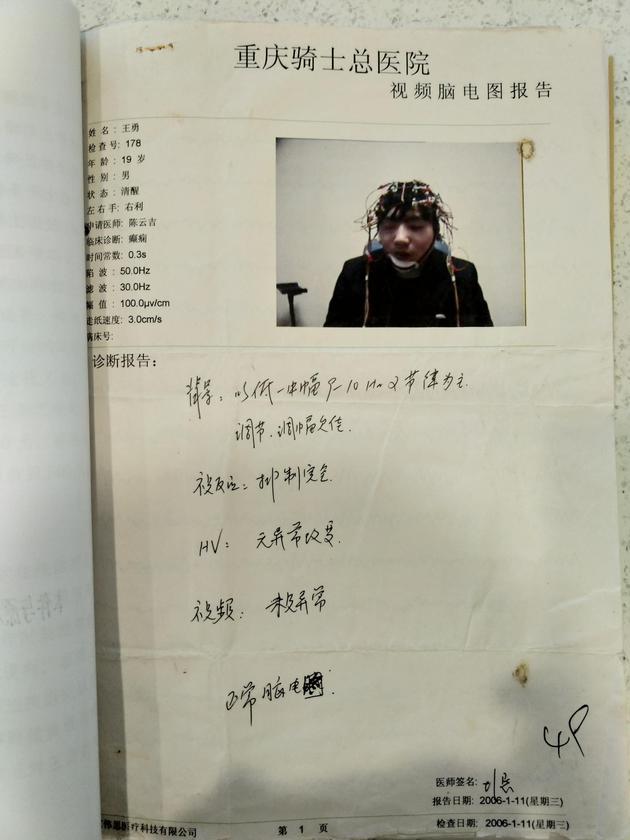 重庆骑士总医院
视频脑电图报告
姓名：王勇
检查号：178
年龄：19 岁
性别：男
状态：清醒
左右手：右利
申请医师：陈云吉
临床诊断：癫痫
时间常数：0.3s
陷波：50.0Hz
滤波：30.0Hz
幅值：100.0μv/cm
走纸速度：3.0cm/s
病床号:
诊断报告：
背景：以低-中幅 9-10Hz α节律为主.
调节.调幅欠佳.
视反应：抑制完全.
HV：无异常改变.
视频：未见异常
正常脑电图.
49
医师签名:
报告日期：2006-1-11(星期三)
检查日期：2006-1-11(星期三)
医疗科技有限公司
第 1 页